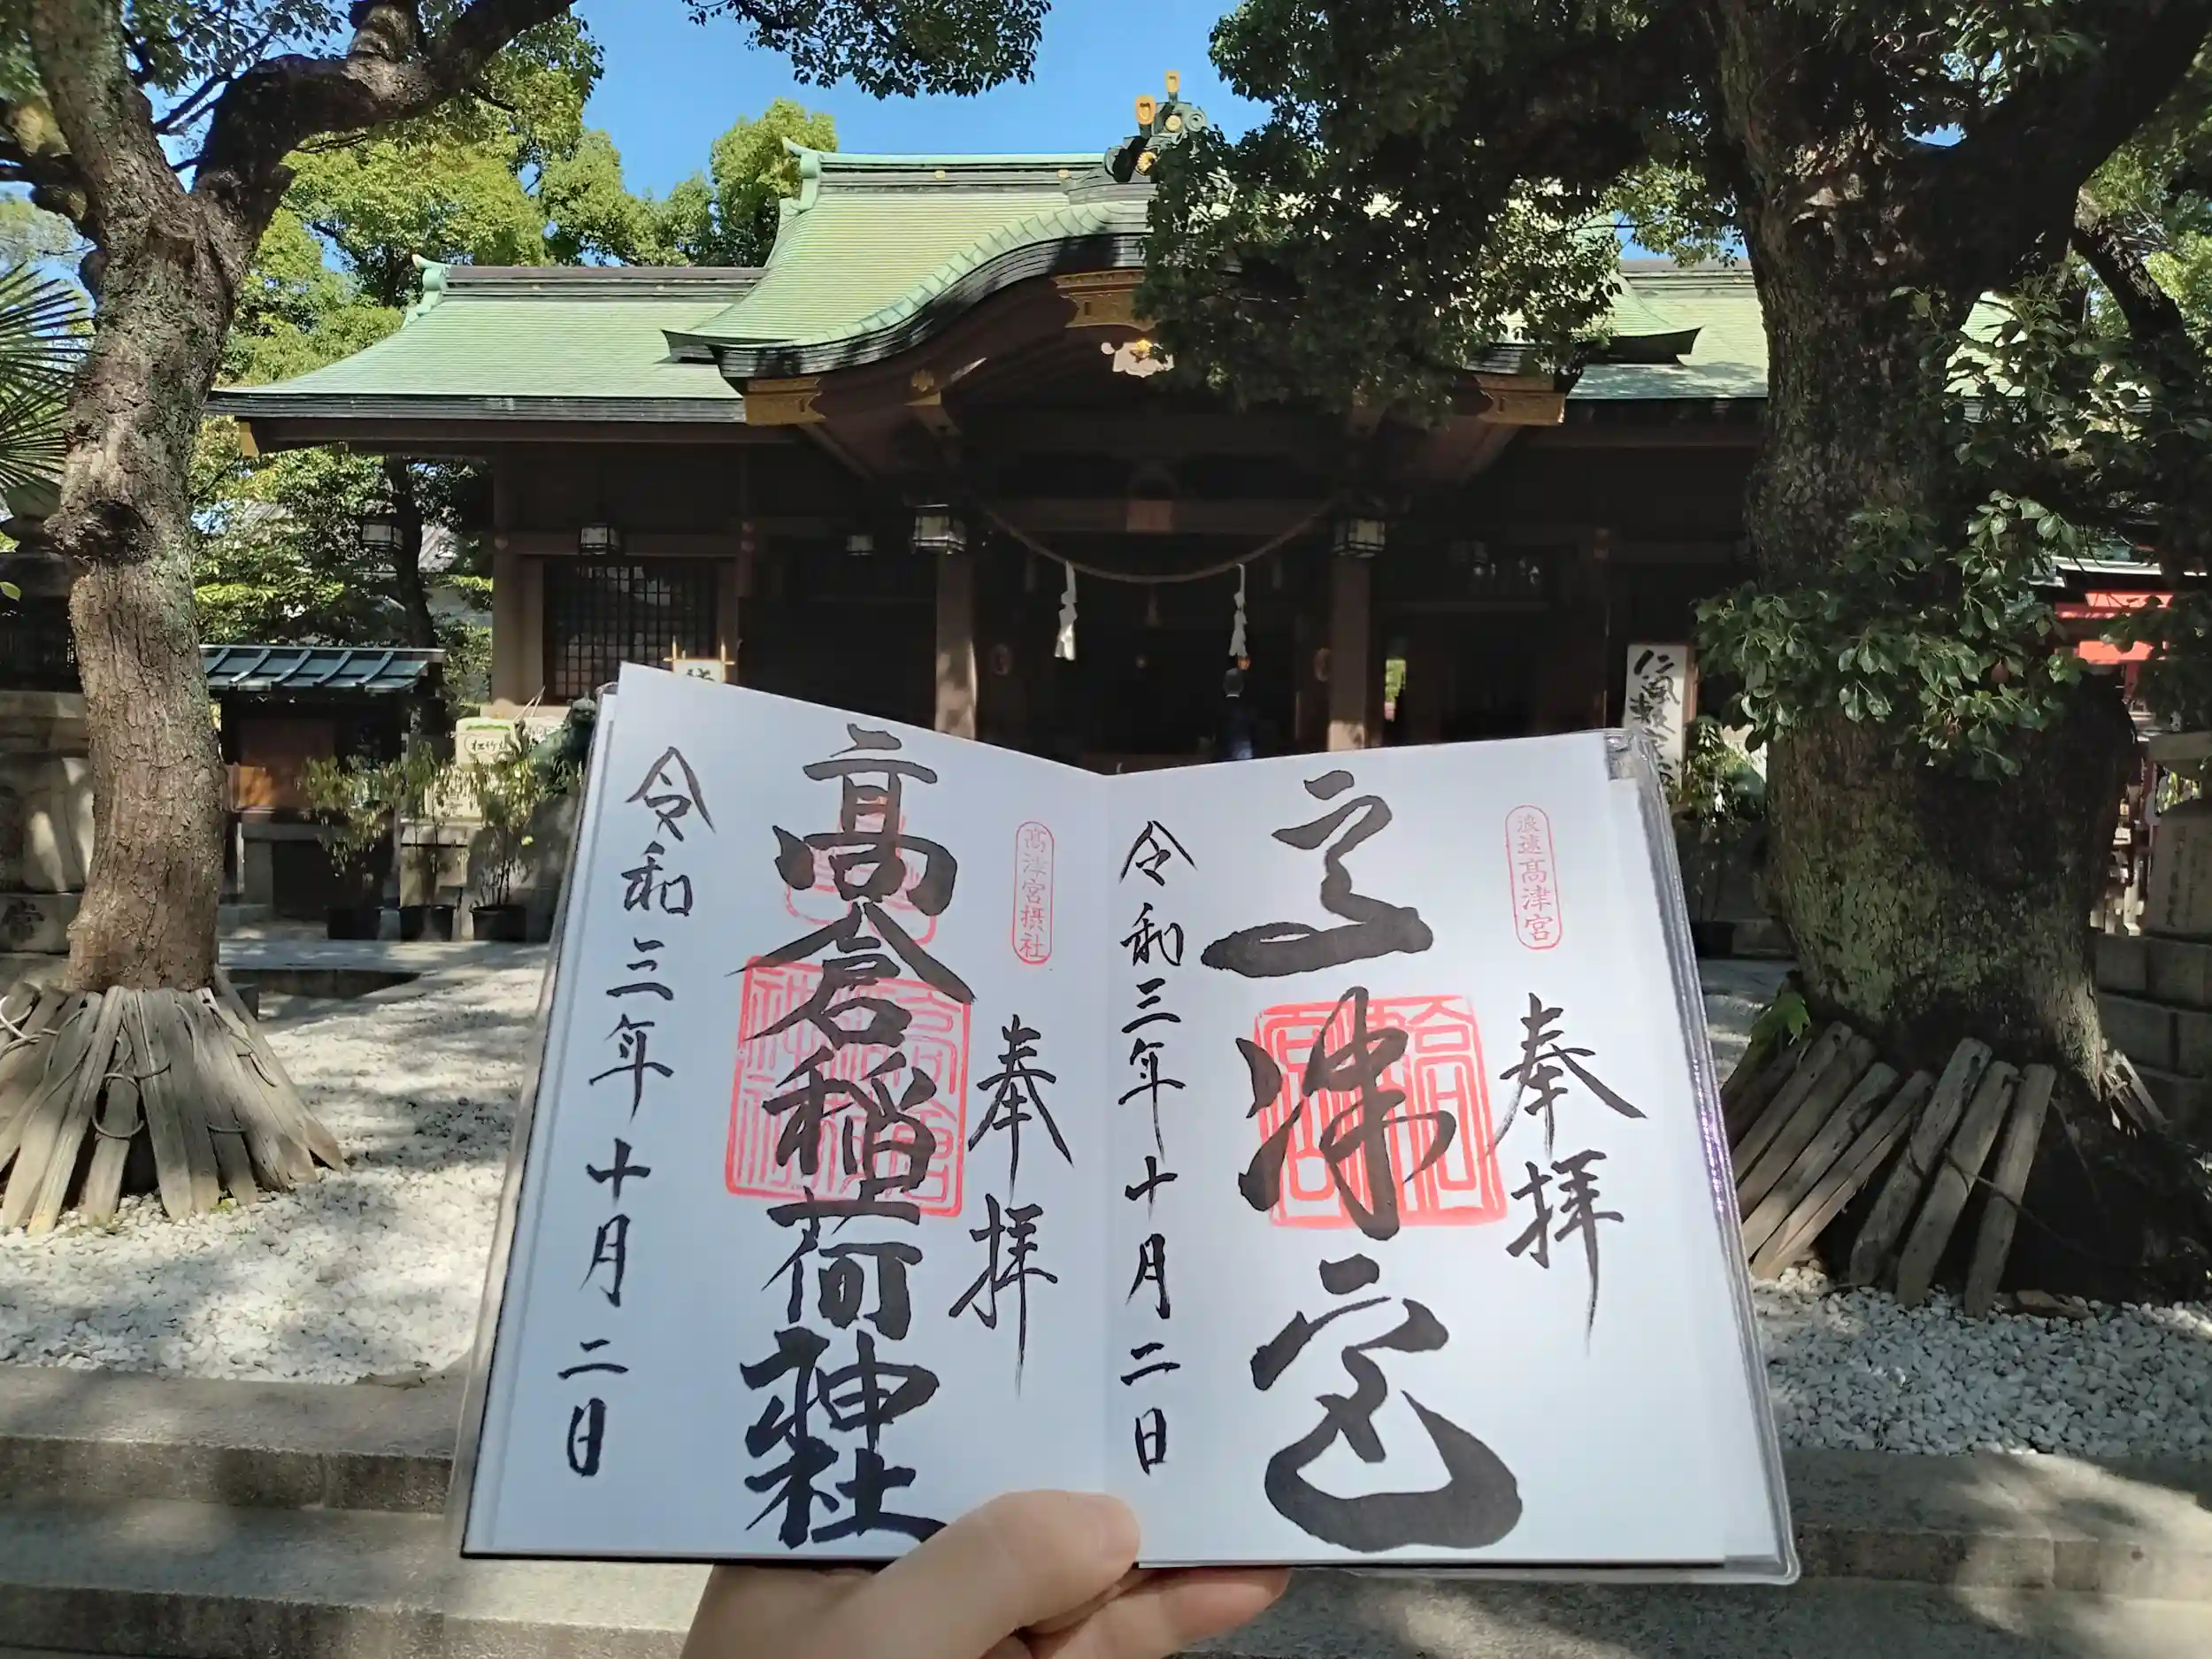 浪速高津宮
奉拝
高津宮
令和三年十月二日
高津宮摂社
奉拝
高倉稲荷神社
令和三年十月二日